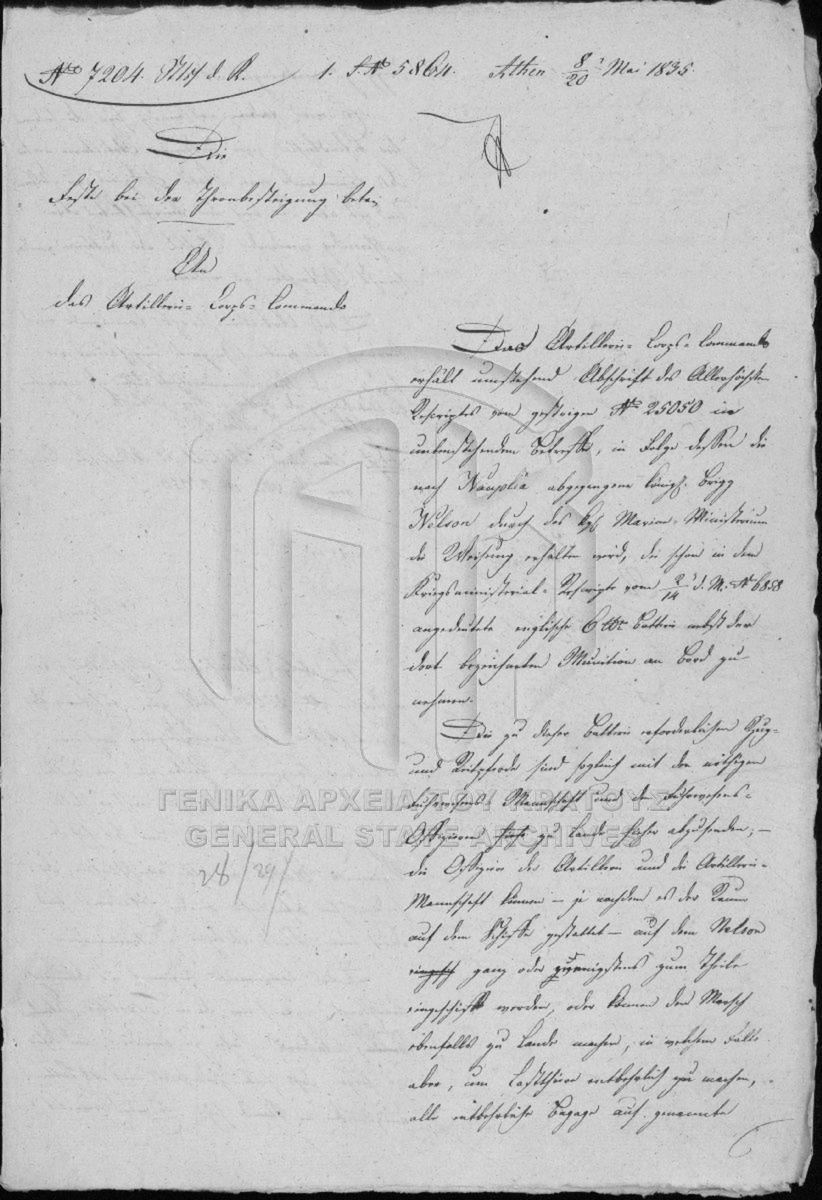 No 7204. 1. S. No 5864. Athen 8/20 Mai 1835.
Die
Feste bei der Thronbesteigung betr.
An
das Artillerie-Corps-Commando
Das Artillerie-Corps-Commando
erhält umstehend Abschrift des Allerhöchsten
Rescriptes vom gestrigen No 25050 in
nebenstehendem Betreffe, in Folge dessen die
nach Nauplia abgegangene königl. Brigg
Nelson durch das kgl. Marine-Ministerium
die Weisung erhalten wird, die schon in dem
Kriegsministerial-Rescripte vom 2/14 d. M. No 6858
angedeutete englische 6 Batterie nebst der
dort bezeichneten Munition an Bord zu
nehmen.
Die zu dieser Batterie erforderlichen Zug-
und Reitpferde sind sogleich mit der nöthigen
Fuhrwesens-Mannschaft und de Fuhrwesens-
Offizieren zu Lande hieher abzusenden; —
die Offiziere der Artillerie und die Artillerie-
Mannschaft können — je nachdem es der Raum
auf dem Schiffe gestattet — auf dem Nelson
ganz oder wenigstens zum Theile
eingeschifft werden, oder können den Marsch
ebenfalls zu Lande machen, in welchem Falle
aber, um Lastthiere entbehrlich zu machen,
alle entbehrliche Bagage auf genannte
28/29
ΓΕΝΙΚΑ ΑΡΧΕΙΑ ΤΟΥ ΚΡΑΤΟΥΣ
GENERAL STATE ARCHIVES